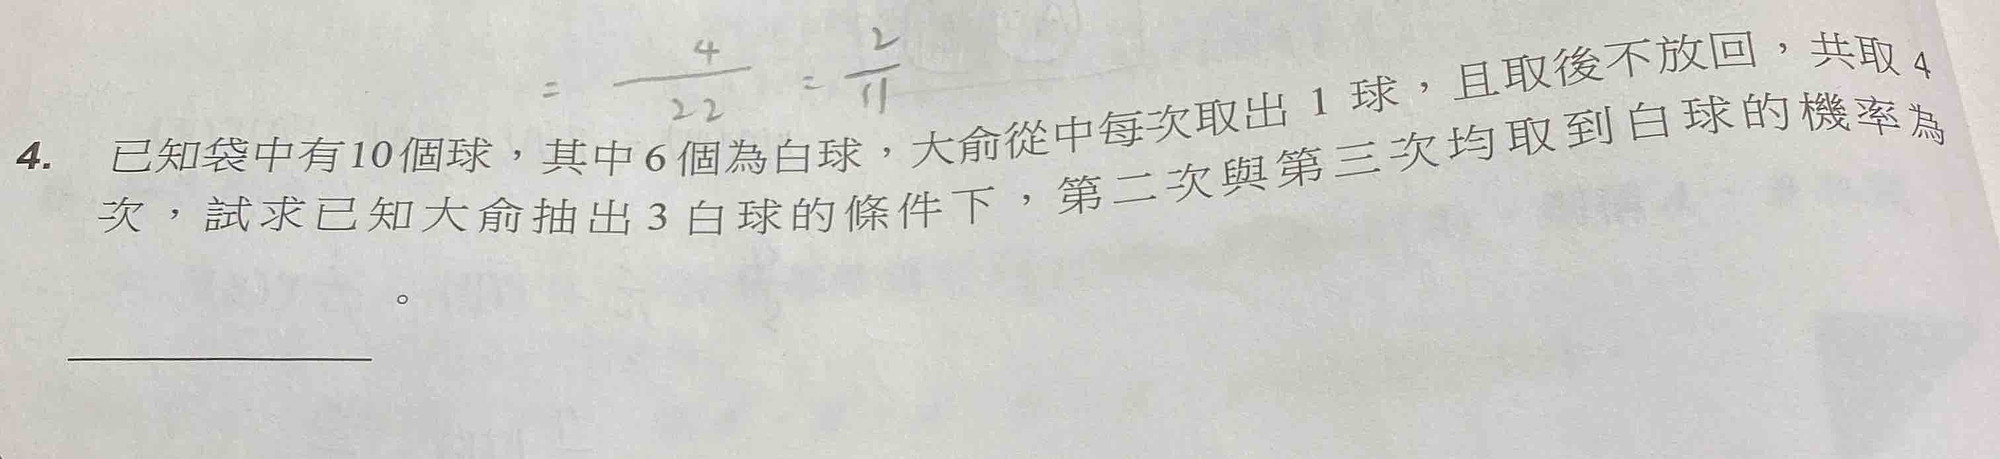 = 4/22 = 2/11
4. 已知袋中有10個球，其中6個為白球，大俞從中每次取出 1 球，且取後不放回，共取 4
次，試求已知大俞抽出 3 白球的條件下，第二次與第三次均取到白球的機率為
。